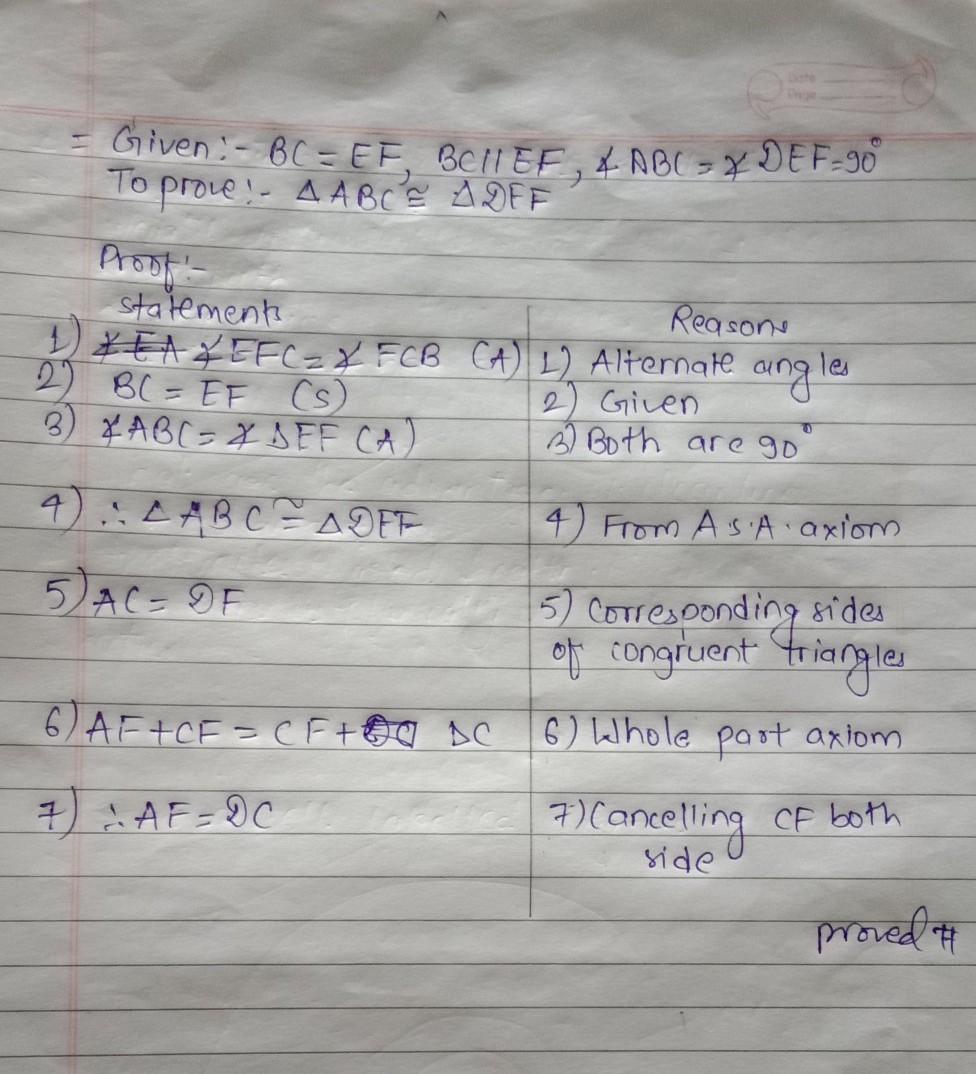 Date
Page
= Given:- BC = EF, BC || EF, ∡ABC = ∡DEF = 90°
To prove:- △ABC ≅ △DEF
Proof:-
statements
Reasons
1) ∡EFC = ∡FCB (A)
1) Alternate angles
2) BC = EF (S)
2) Given
3) ∡ABC = ∡DEF (A)
3) Both are 90°
4) ∴ △ABC ≅ △DEF
4) From A.S.A. axiom
5) AC = DF
5) Corresponding sides
of congruent triangles
6) AF + CF = CF + DC
6) Whole part axiom
7) ∴ AF = DC
7) Cancelling CF both
side
proved #